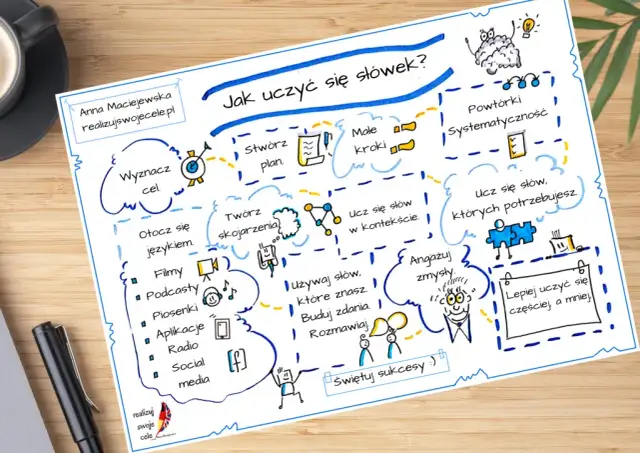 Jak uczyć się słówek?
Anna Maciejewska
realizujswojecele.pl
Wyznacz
cel
Stwórz
plan
Małe
kroki
Powtórki
Systematyczność
Ucz się słów,
których potrzebujesz
Ucz się słów
w kontekście.
Twórz
skojarzenia
Otocz się
językiem.
Filmy
Podcasty
Piosenki
Aplikacje
Radio
Social
media
Używaj słów,
które znasz.
Buduj zdania.
Rozmawiaj
Angażuj
zmysły.
Lepiej uczyć się
częściej, a mniej.
Świętuj sukcesy :)
realizuj
swoje
cele